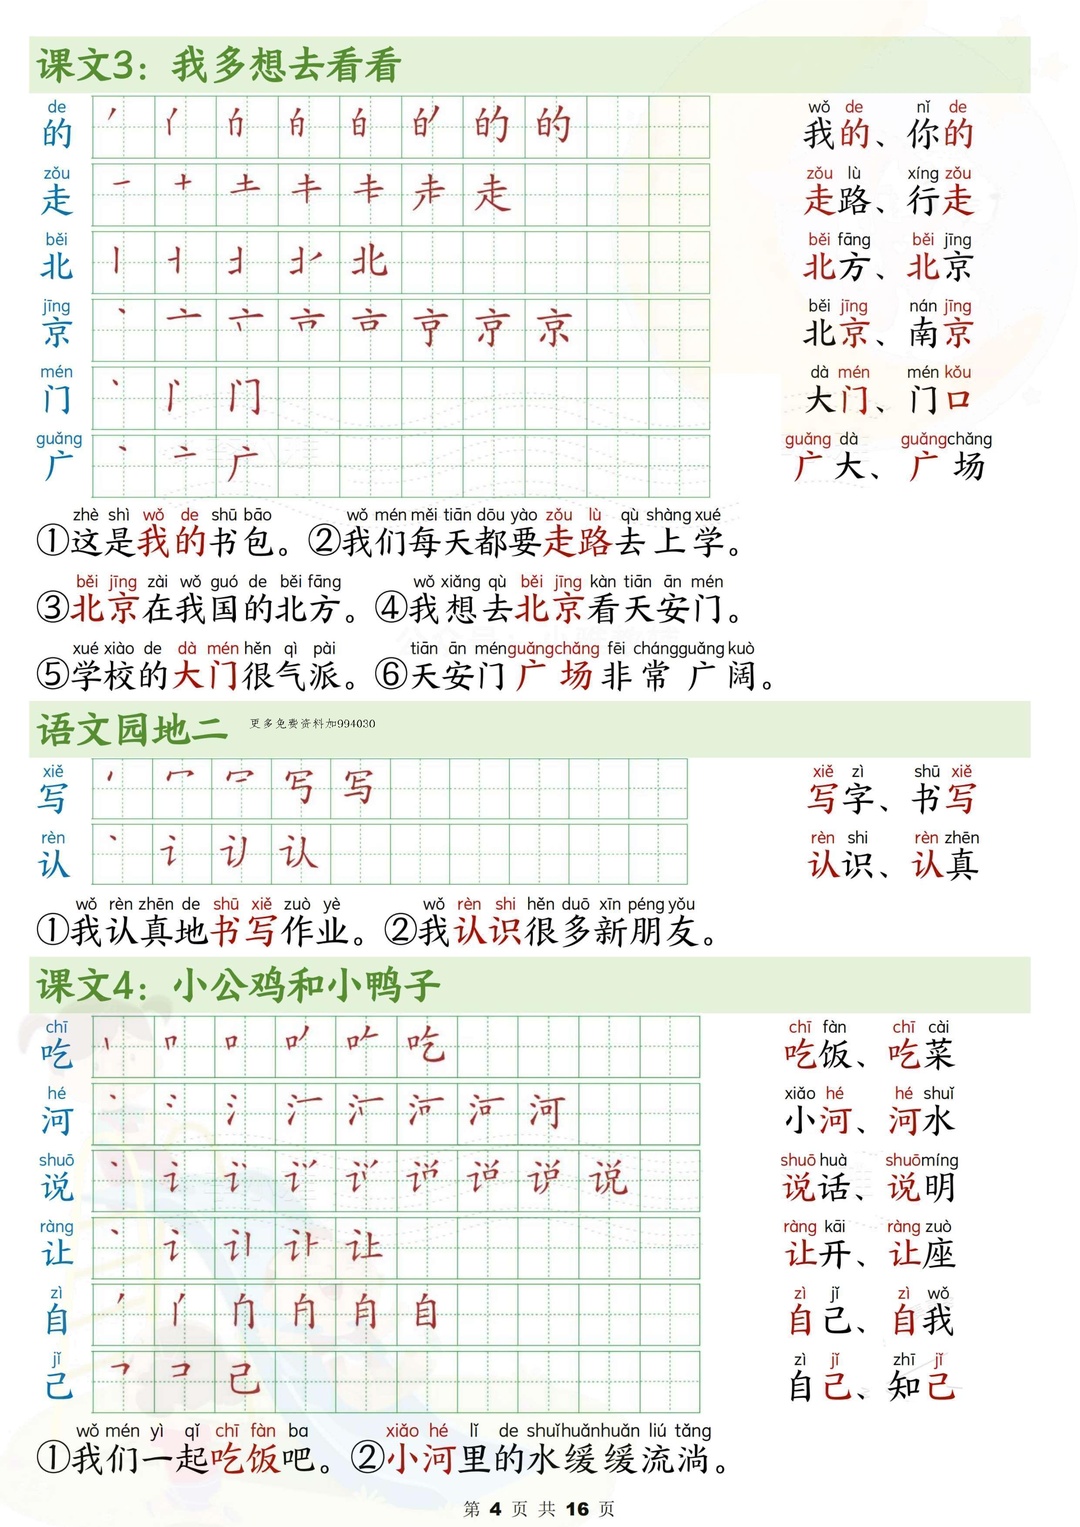 课文3：我多想去看看
de wǒ de nǐ de
的 我的、你的
zǒu zǒu lù xíng zǒu
走 走路、行走
běi běi fāng běi jīng
北 北方、北京
jīng běi jīng nán jīng
京 北京、南京
mén dà mén mén kǒu
门 大门、门口
guǎng guǎng dà guǎngchǎng
广 广大、广场
zhè shì wǒ de shū bāo wǒ mén měi tiān dōu yào zǒu lù qù shàng xué
①这是我的书包。②我们每天都要走路去上学。
běi jīng zài wǒ guó de běi fāng wǒ xiǎng qù běi jīng kàn tiān ān mén
③北京在我国的北方。④我想去北京看天安门。
xué xiào de dà mén hěn qì pài tiān ān ménguǎngchǎng fēi chángguǎng kuò
⑤学校的大门很气派。⑥天安门广场非常广阔。
语文园地二 更多免费资料加994030
xiě xiě zì shū xiě
写 写字、书写
rèn rèn shi rèn zhēn
认 认识、认真
wǒ rèn zhēn de shū xiě zuò yè wǒ rèn shi hěn duō xīn péng yǒu
①我认真地书写作业。②我认识很多新朋友。
课文4：小公鸡和小鸭子
chī chī fàn chī cài
吃 吃饭、吃菜
hé xiǎo hé hé shuǐ
河 小河、河水
shuō shuō huà shuōmíng
说 说话、说明
ràng ràng kāi ràng zuò
让 让开、让座
zì zì jǐ zì wǒ
自 自己、自我
jǐ zì jǐ zhī jǐ
己 自己、知己
wǒ mén yì qǐ chī fàn ba xiǎo hé lǐ de shuǐhuǎnhuǎn liú tǎng
①我们一起吃饭吧。②小河里的水缓缓流淌。
第 4 页 共 16 页